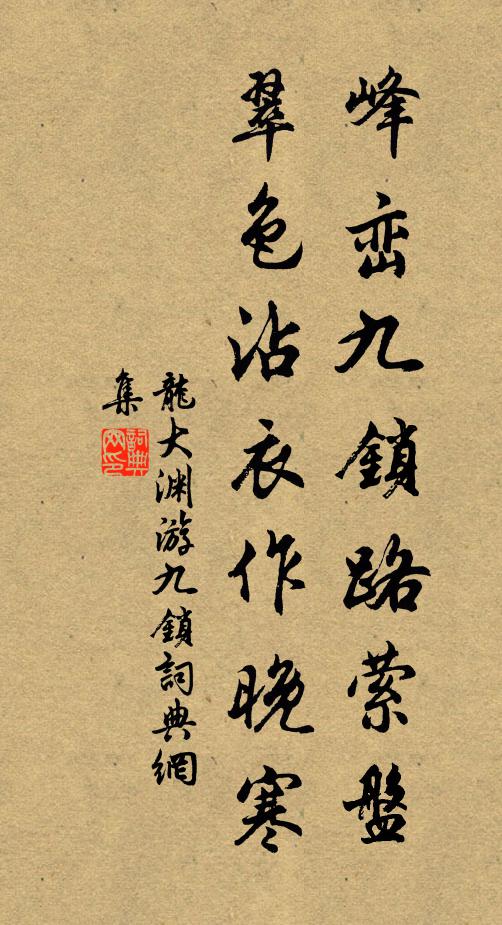 峰峦九鎖路萦盤
翠色沾衣作晚寒
龍大渊游九鎖詞典網
集
詞典网印